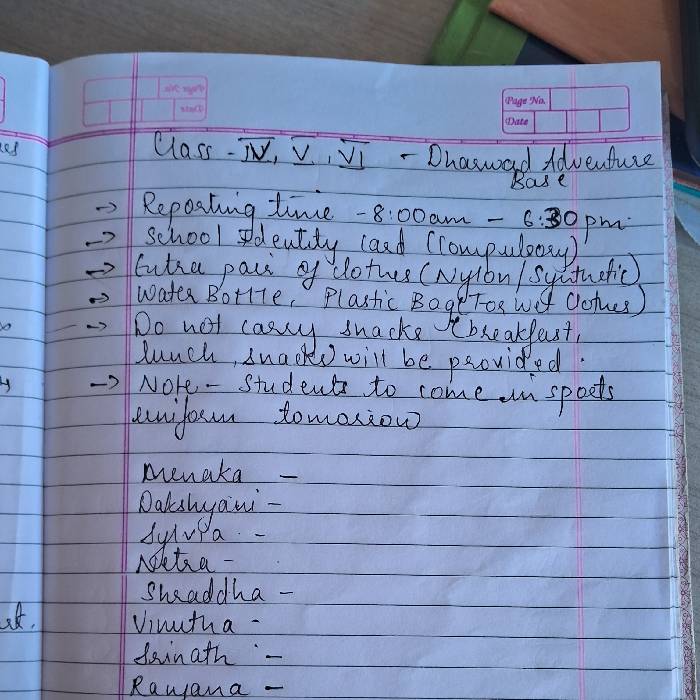 Page No.
Date
Class - IV, V, VI - Dharwad Adventure
Base
→ Reporting time - 8:00am - 6:30pm.
→ School Identity card (Compulsory)
→ Extra pair of clothes (Nylon/Synthetic)
→ Water Bottle, Plastic Bag (For wet Clothes)
→ Do not carry snacks (breakfast,
lunch, snacks) will be provided.
→ Note - Students to come in sports
uniform tomorrow
Menaka -
Dakshyani -
Sylvia -
Netra -
Shraddha -
Vinutha -
Srinath -
Ranjana -